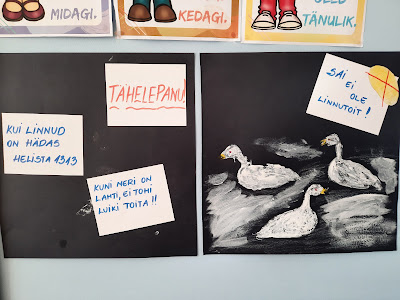 MIDAGI.
KEDAGI.
OLED
TÄNULIK.
TÄHELEPANU!
KUI LINNUD
ON HÄDAS
HELISTA 1313
KUNI NERI ON
LAHTI, EI TOHI
LUIKI TOITA!!
SAI
EI
OLE
LINNUTOIT!